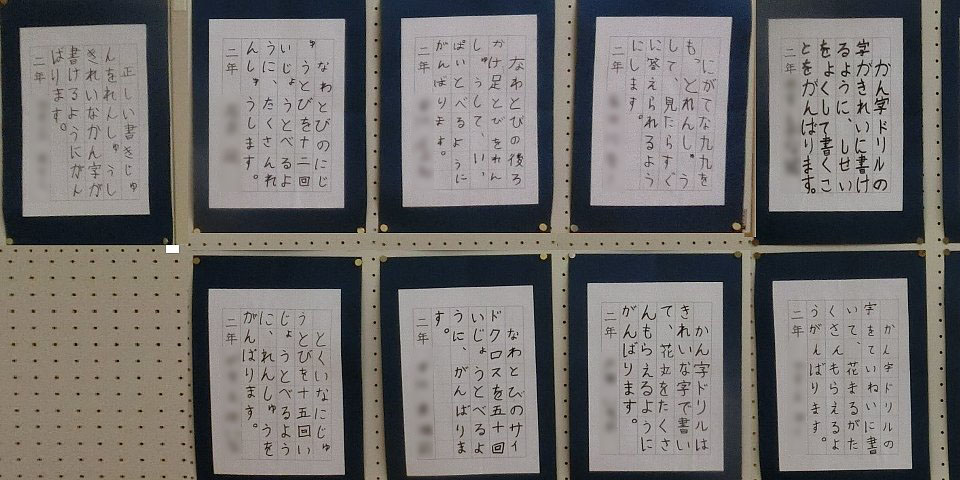 正しい書きじゅ
んをれんしゅうし
きれいなかん字が
書けるようにがん
ばります。
二年
なわとびのにじ
ゅうとびを十二回
いじょうとべるよ
うに、たくさんれ
んしゅうします。
二年
なわとびの後ろ
かけ足とびをれん
しゅうして、い、
ぱいとべるように
がんばります。
二年
にがてな九九を
も、とれんしゅう
して、見たらすぐ
に答えられるよう
にします。
二年
かん字ドリルの
字がきれいに書け
るように、しせい
をよくして書くこ
とをがんばります。
二年
とくいなにじゅ
うとびを十五回い
じょうとべるよう
に、れんしゅうを
がんばります。
二年
なわとびのサイ
ドクロスを五十回
いじょうとべるよ
うに、がんばりま
す。
二年
かん字ドリルは
きれいな字で書い
て、花丸をたくさ
んもらえるように
がんばります。
二年
かん字ドリルの
字をていねいに書
いて、花まるがた
くさんもらえるよ
うがんばります。
二年